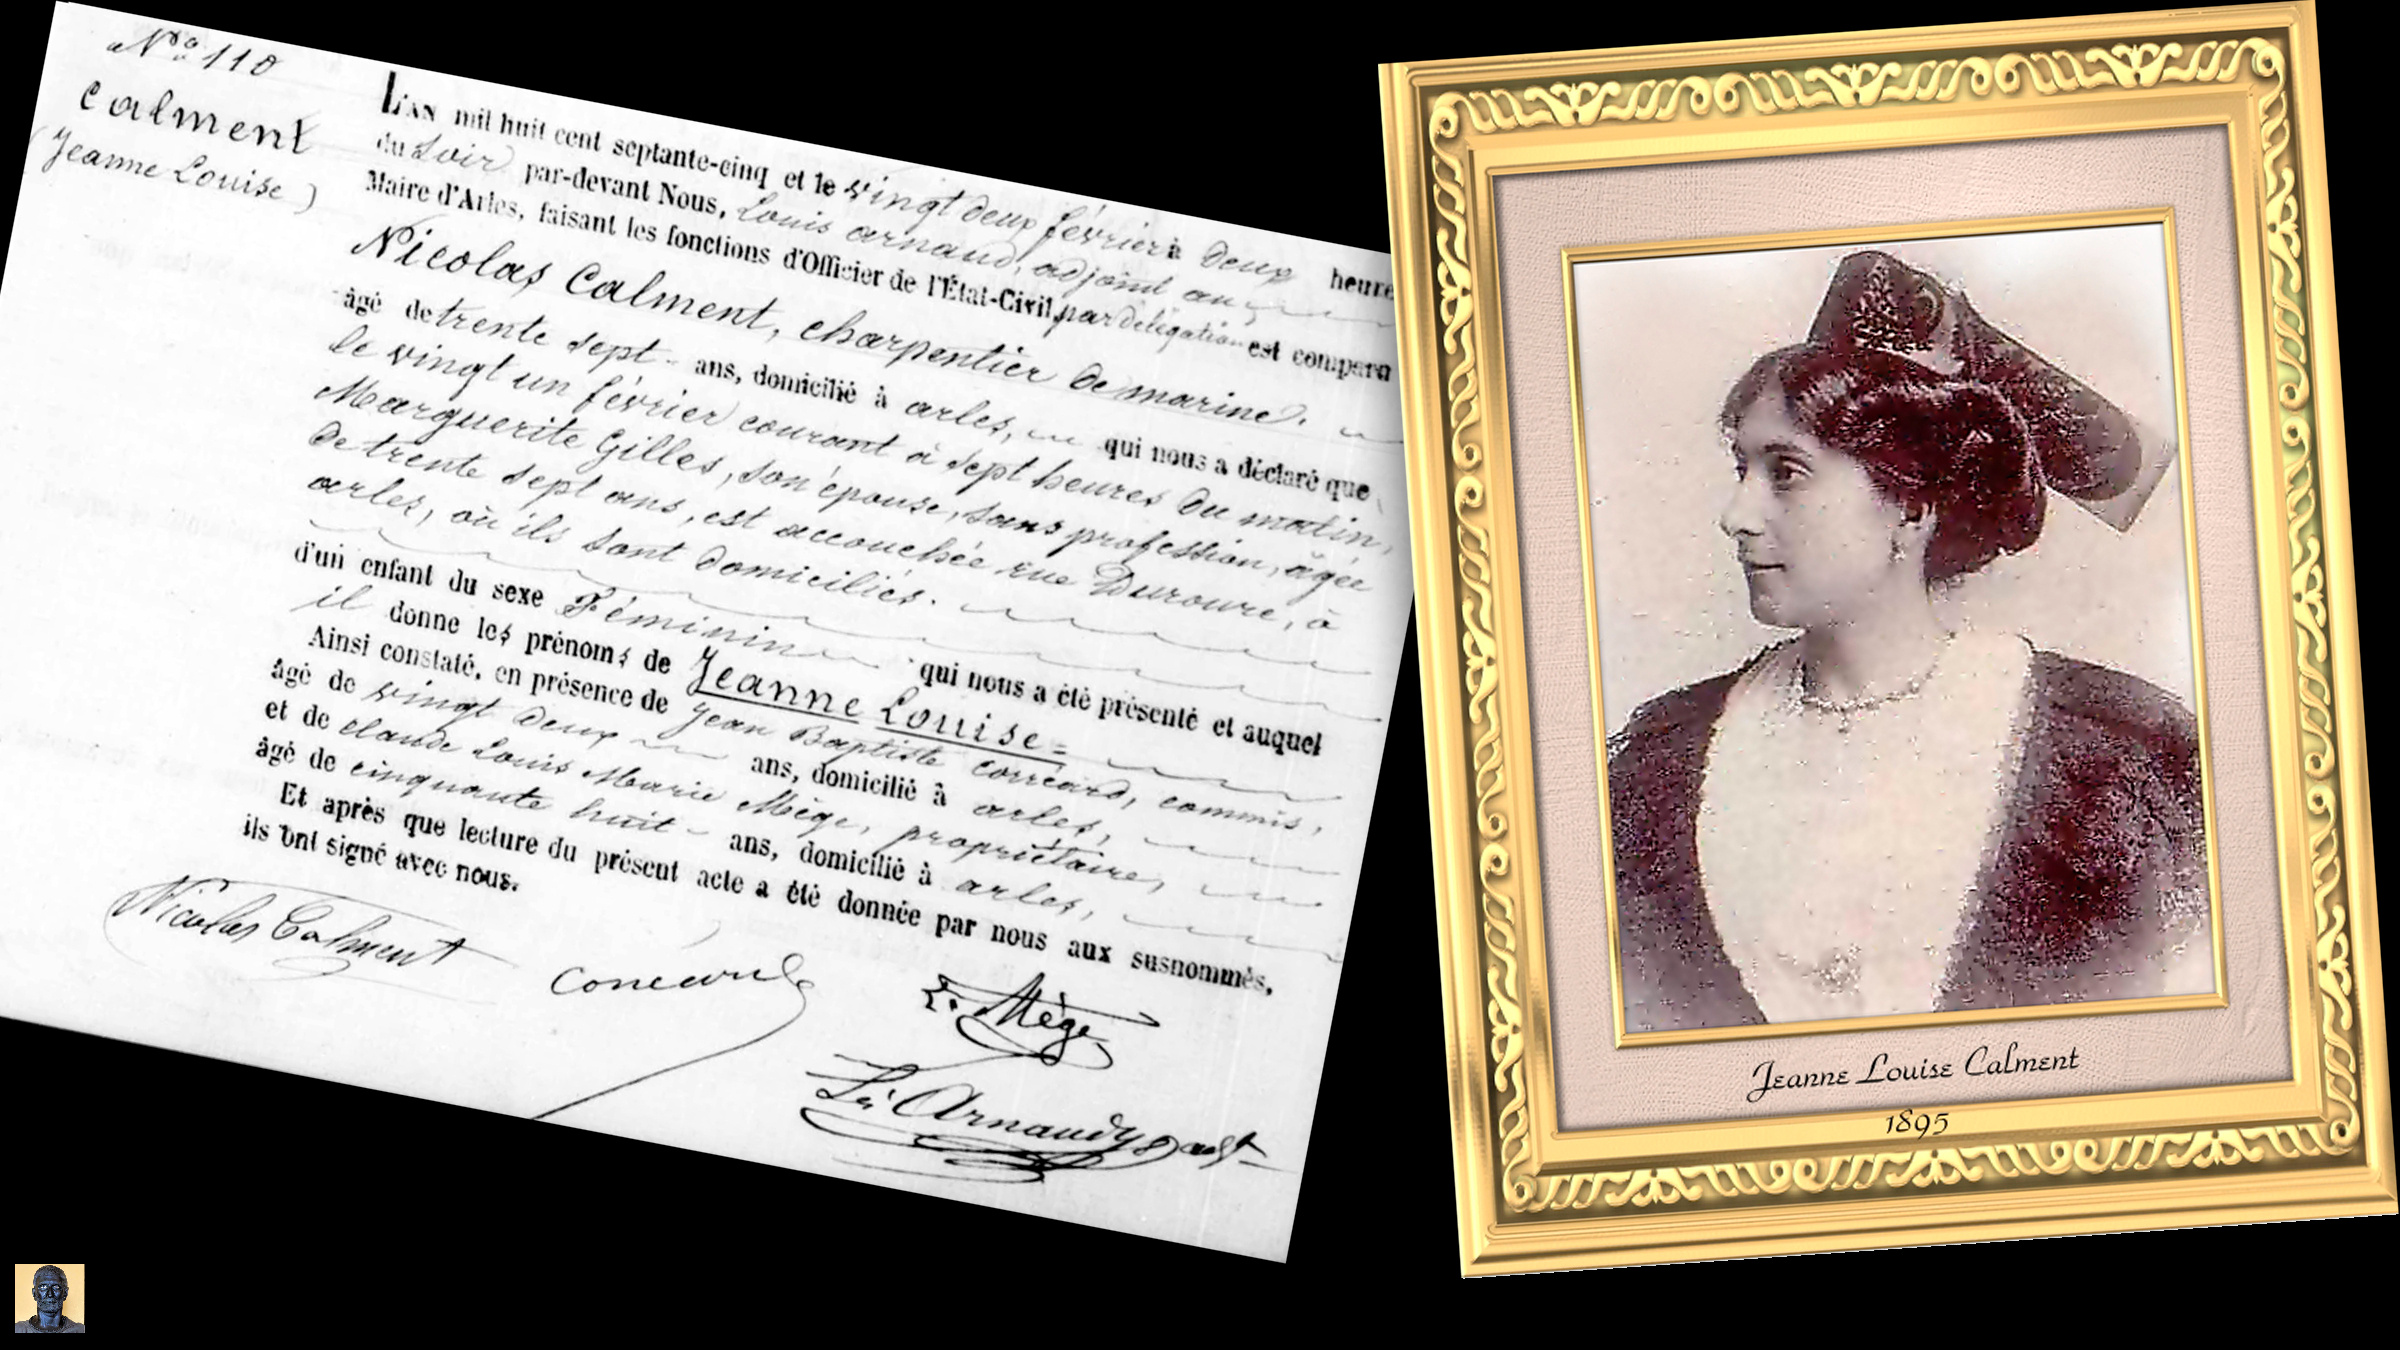 N° 110
Calment
(Jeanne Louise)
L'AN mil huit cent septante-cinq et le vingt deux février à deux heure
du soir par-devant Nous, Louis arnaud, adjoint au
Maire d'Arles, faisant les fonctions d'Officier de l'État-Civil, par délégation est compara
Nicolas Calment, charpentier de marine.
âgé de trente sept ans, domicilié à arles, qui nous a déclaré que
le vingt un février courant à sept heures du matin,
Marguerite Gilles, son épouse, sans profession, âgée
de trente sept ans, est accouchée rue Duroure, à
arles, où ils sont domiciliés.
d'un enfant du sexe Féminin qui nous a été présenté et auquel
il donne les prénoms de Jeanne Louise =
Ainsi constaté, en présence de Jean Baptiste corréard, commis,
âgé de vingt deux ans, domicilié à arles,
et de claude Louis Marie Mège, propriétaire,
âgé de cinquante huit ans, domicilié à arles,
Et après que lecture du présent acte a été donnée par nous aux susnommés,
ils ont signé avec nous.
Nicolas Calment
Mège
Arnaud
Jeanne Louise Calment
1895